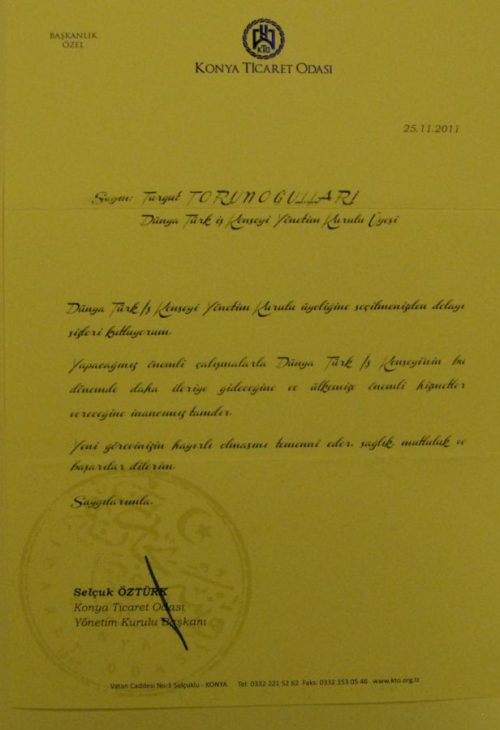 BAŞKANLIK
ÖZEL
KTO
KONYA TİCARET ODASI
25.11.2011
Sayın: Turgut TORUNOĞULLARI
Dünya Türk iş Konseyi Yönetim Kurulu Üyesi
Dünya Türk İş Konseyi Yönetim Kurulu üyeliğine seçilmenizden dolayı
sizleri kutluyorum.
Yapacağınız önemli çalışmalarla Dünya Türk İş Konseyi'nin bu
dönemde daha ileriye gideceğine ve ülkemize önemli hizmetler
vereceğine inancımız tamdır.
Yeni görevinizin hayırlı olmasını temenni eder, sağlık, mutluluk ve
başarılar dilerim.
Saygılarımla,
Selçuk ÖZTÜRK
Konya Ticaret Odası
Yönetim Kurulu Başkanı
Vatan Caddesi No:1 Selçuklu - KONYA Tel: 0332 221 52 62 Faks: 0332 353 05 46 www.kto.org.tr